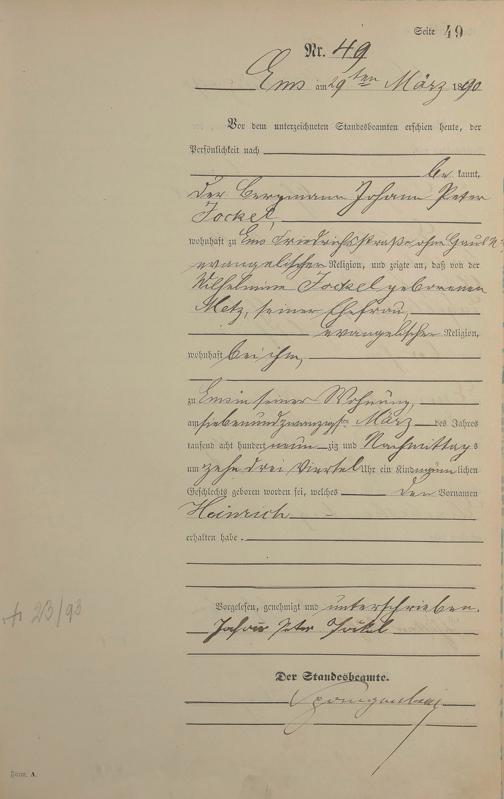 Seite 49
Nr. 49
Ems am 29ten März 1890
Vor dem unterzeichneten Standesbeamten erschien heute, der
Persönlichkeit nach
be kannt,
der Bergmann Johann Peter
Jockel,
wohnhaft zu Ems Friedrichsstraße ohne Haus N:
evangelischer Religion, und zeigte an, daß von der
Wilhelmine Jockel geborenen
Metz, seiner Ehefrau,
evangelischer Religion,
wohnhaft bei ihm,
zu Ems in seiner Wohnung,
am siebenundzwanzigst März des Jahres
tausend acht hundert neun zig und Nachmittags
um zehn drei Viertel Uhr ein Kind männ lichen
Geschlechts geboren worden sei, welches den Vornamen
Heinrich
erhalten habe.
Vorgelesen, genehmigt und unterschrieben.
Johann Peter Jökel
Der Standesbeamte.
23/93
Form. A.